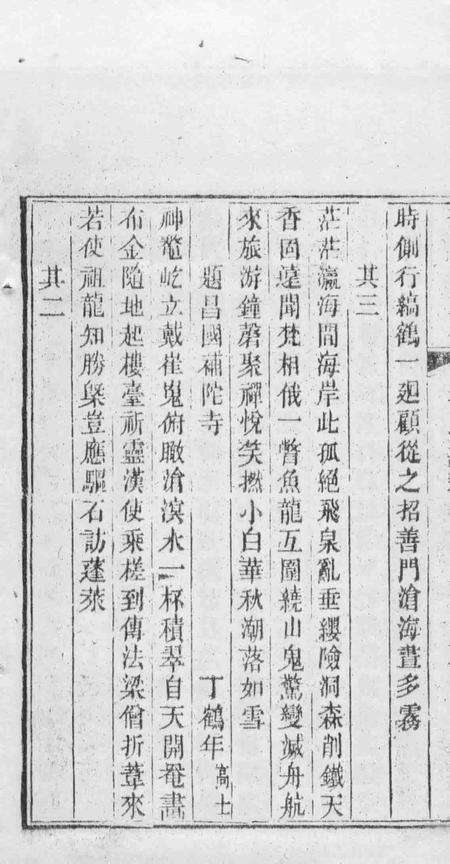 時側行縞鶴一迴顧從之招善門滄海晝多霧
其三
茫茫瀛海間海岸此孤絕飛泉亂垂纓險洞森削鐵天
香固遠聞梵相俄一瞥魚龍互圍繞山鬼驚變滅舟航
來旅游鐘磬聚禪悅笑撚小白華秋潮落如雪
題昌國補陀寺　丁鶴年高士
神鼇屹立戴崔嵬俯瞰滄溟水一杯積翠自天開罨畫
布金隨地起樓臺祈靈漢使乘槎到傳法梁僧折葦來
若使祖龍知勝槩豈應驅石訪蓬萊
其二